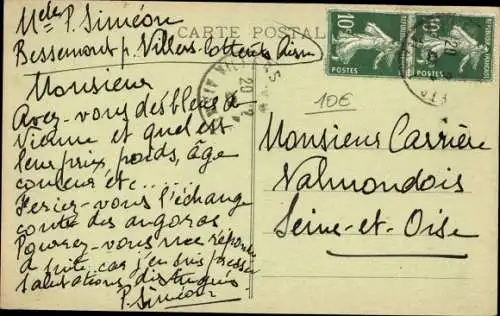 CARTE POSTALE
Mde P. Siméon
Bessemont p. Villers-Cotterets Aisne
Monsieur
Avez-vous des bleus de
Vienne et quel est
leur prix, poids, âge
couleur etc....
Feriez-vous l'échange
contre des angoras
Pouvez-vous me répondre
de suite car j'en suis pressée
Salutations distinguées
P. Siméon
10c
POSTES
10c
POSTES
10€
Monsieur Carrière
Valmondois
Seine-et-Oise